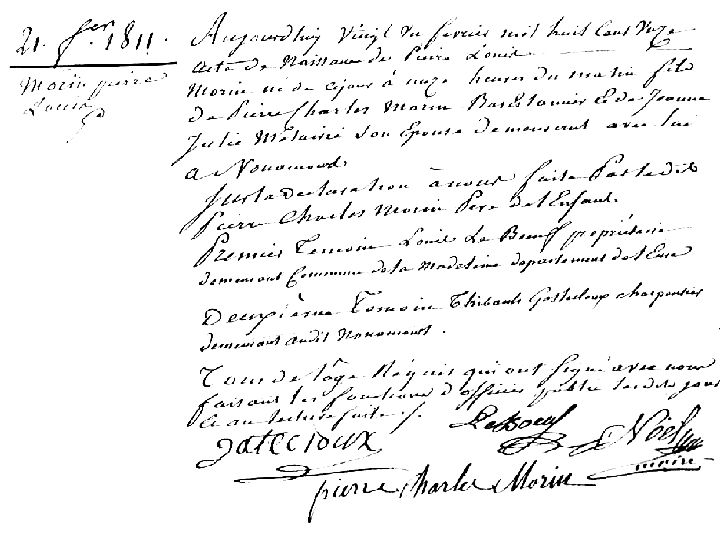 21. fer. 1811.
Morin pierre
Louis
Aujourdhuy Vingt un fevrier mil huit Cent Onze
acte de Naissance de Pierre Louis
Morin né de cejour à onze heures du matin fils
de Pierre Charles Morin et de Jeanne
Julie Métairie son Epouse demeurant avec lui
a Nonancourt
Sur la declaration à nous faite Par ledit
Pierre Charles Morin Pere de l'Enfant.
Premier Temoin Louis Le Boeuf propriétaire
demeurant Commune de la Madeleine departement de l'Eure
Deuxième Temoin Thibault charpentier
demeurant audit Nonancourt.
Tous de l'age Requis qui ont Signé avec nous
faisant les fonctions d'officier public lesdits jour
et an lecture faite ./.
LeBoeuf
Noël
gatecloux
maire
pierre charles Morin